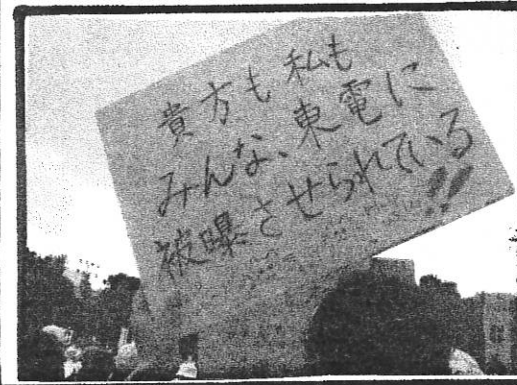 貴方も私も
みんな、東電に
被曝させられている
!!